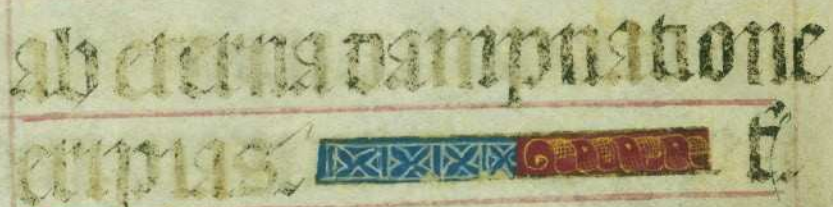 ab eterna dampnatione
eripias. Et